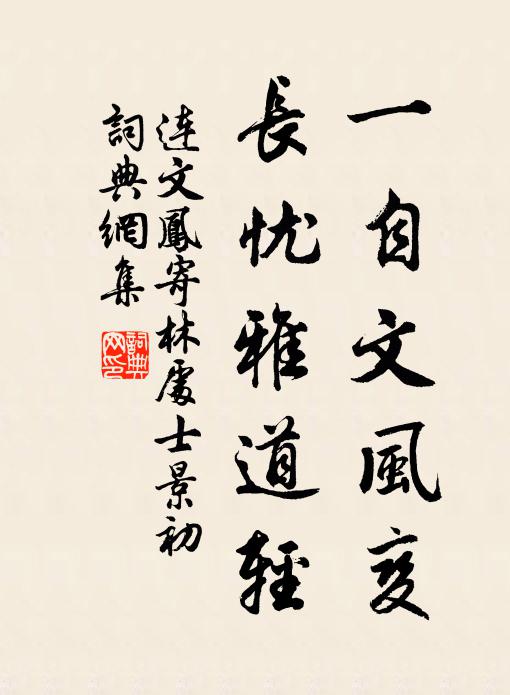 一自文風变
長忧雅道輕
連文鳳寄林處士景初
詞典網集
詞典网印